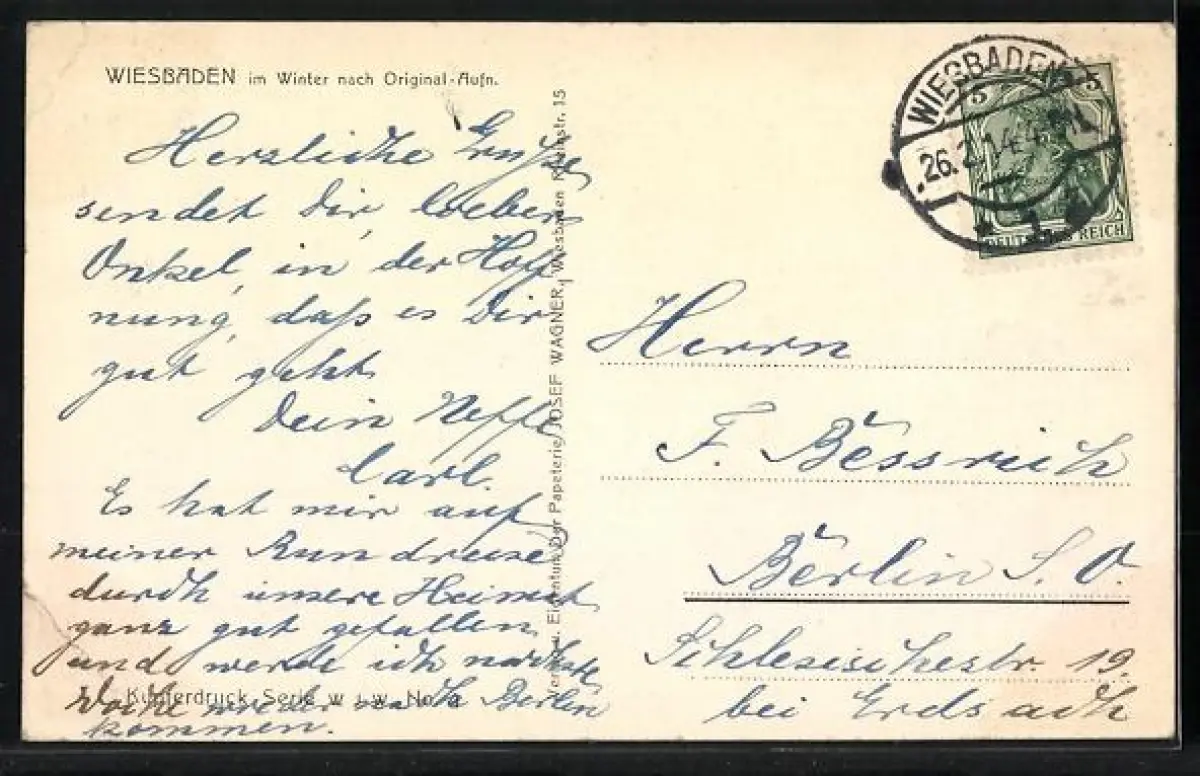 WIESBADEN im Winter nach Original-Aufn.
Herzliche Grüße
sendet Dir, lieber
Onkel, in der Hoff
nung, daß es Dir
gut geht
Dein Neffe
Carl.
Es hat mir auf
meiner Rundreise
durch unsere Heimat
ganz gut gefallen
und werde ich nächste
Woche wieder nach Berlin
kommen.
Kupferdruck Serie W i. W. No.
Verlag u. Eigentum Der Papeterie JOSEF WAGNER, Wiesbaden 15
WIESBADEN
5 5
26.2.14.
* 1
DEUTSCHES REICH
Herrn
F. Bessrich
Berlin S. O.
Schlesischestr. 19.
bei